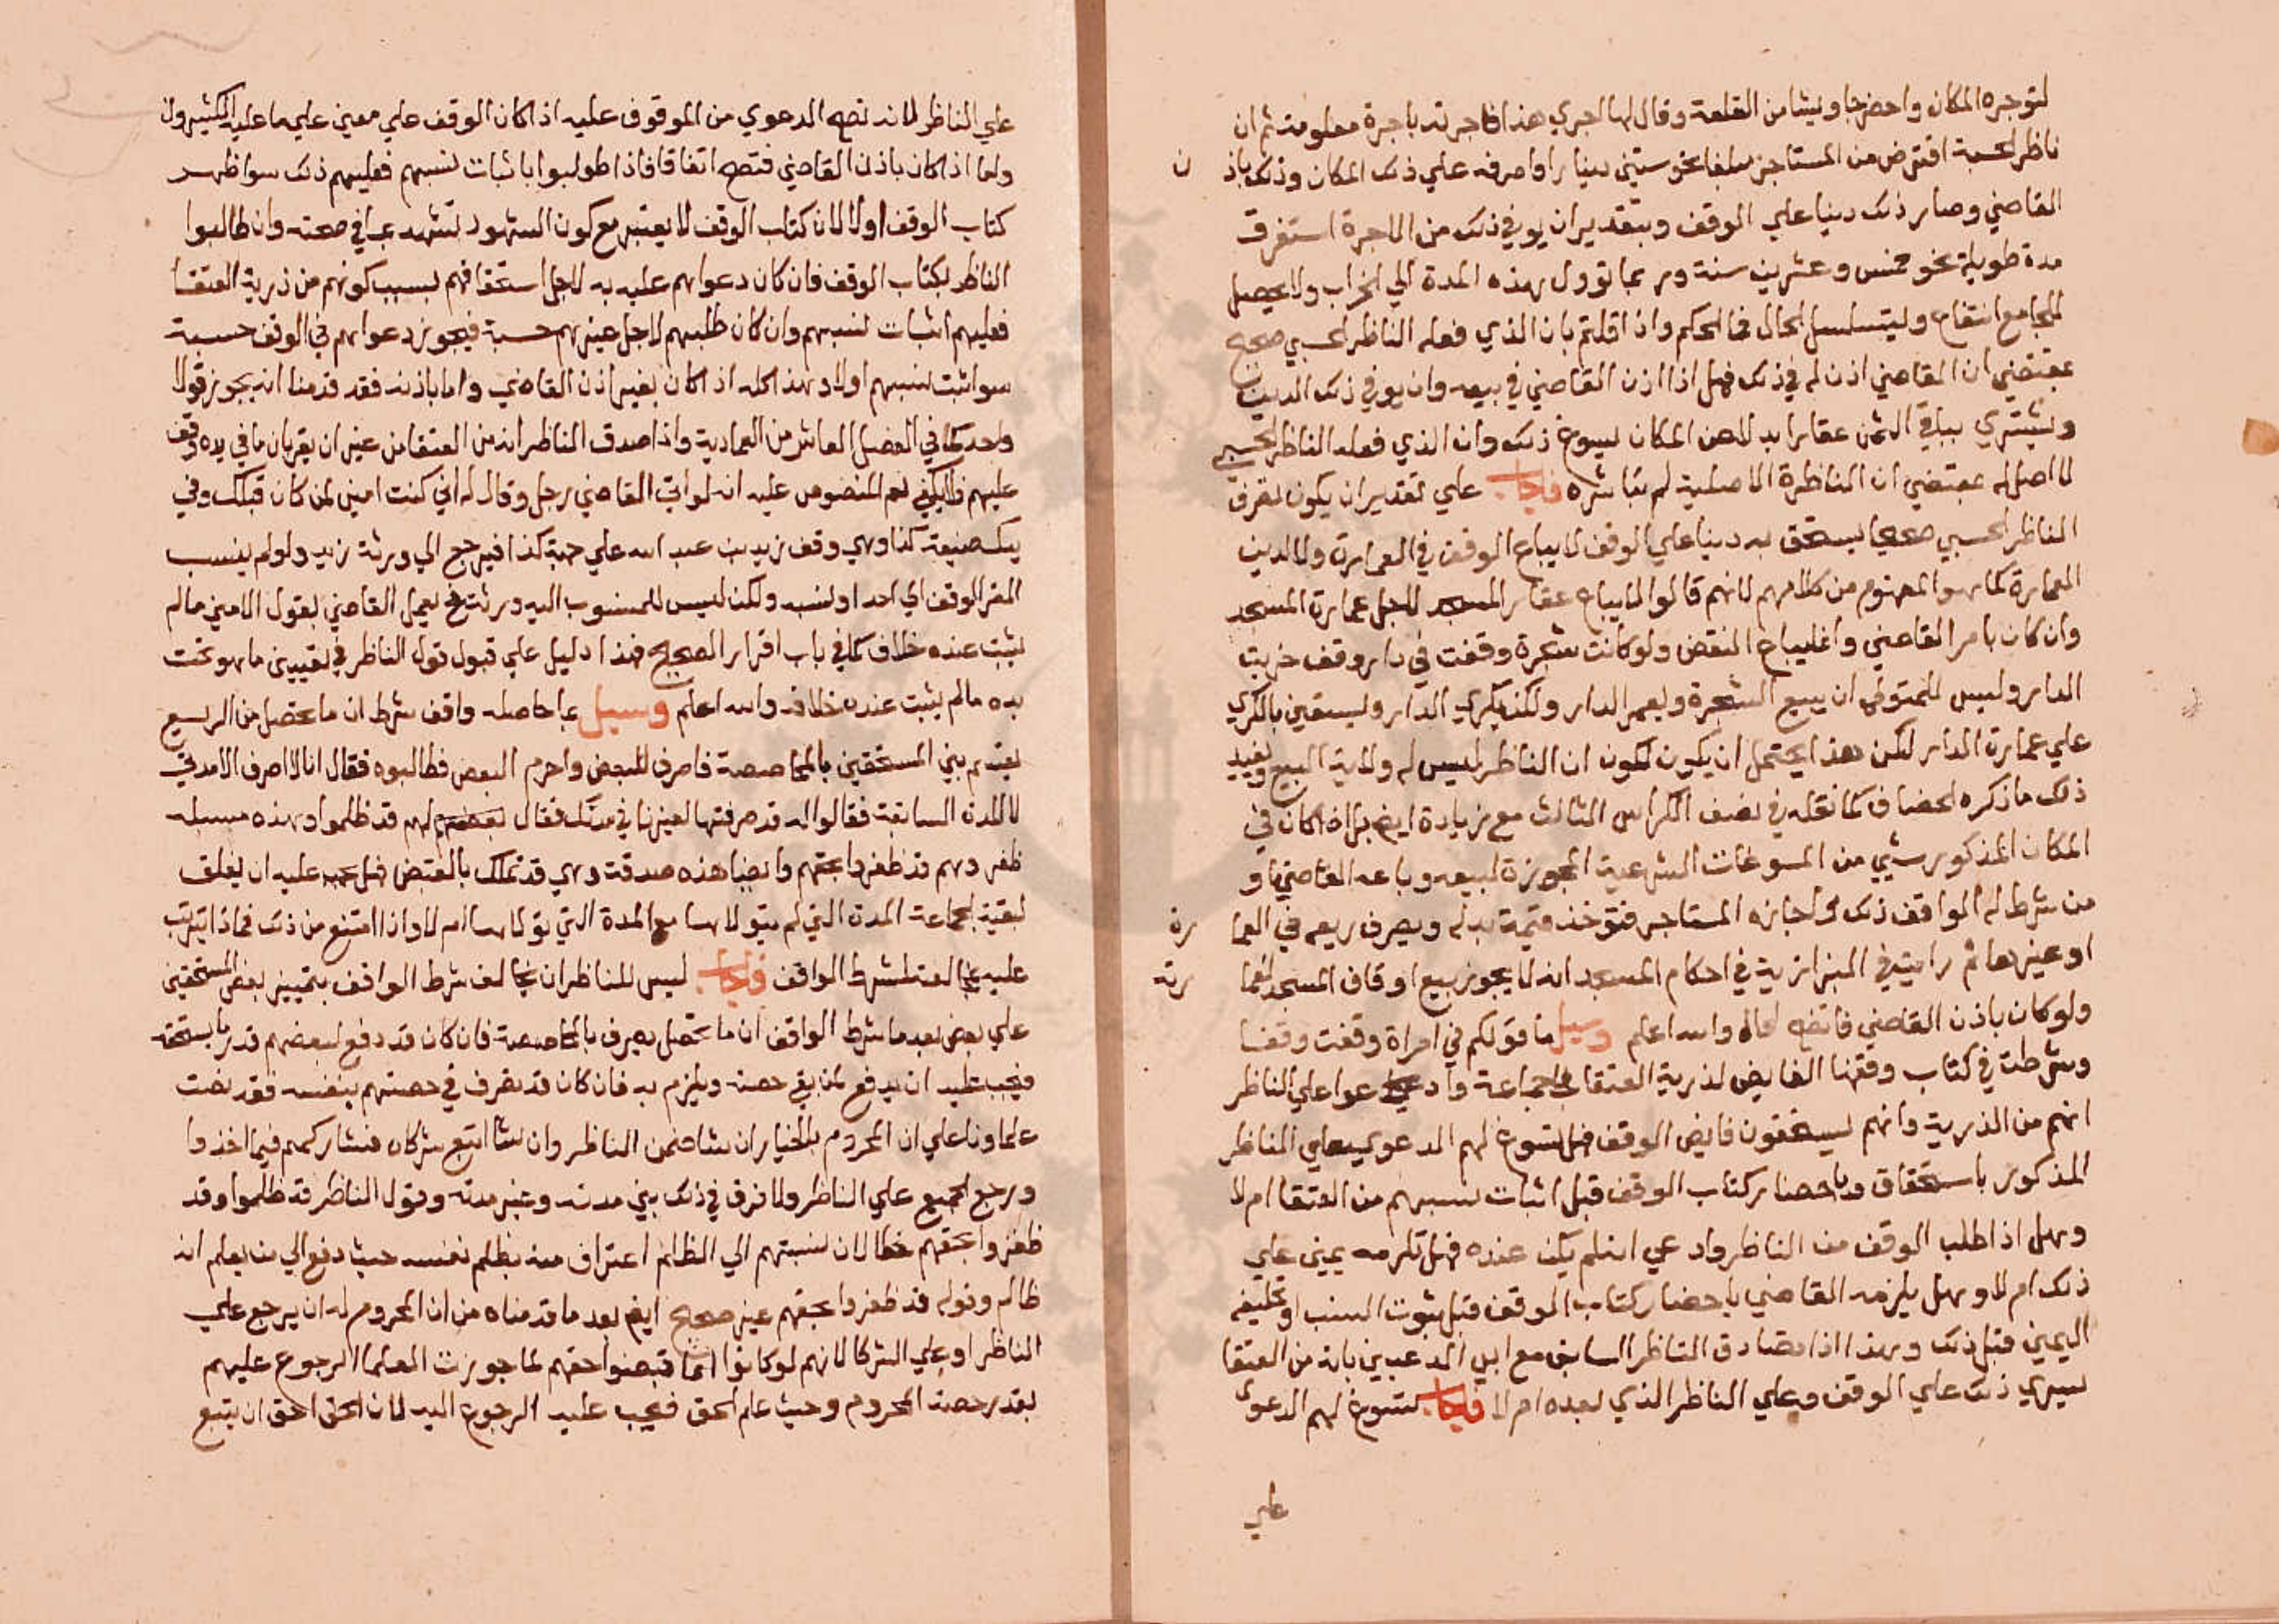 لتوجره المكان واحضرجاويشا من القلعة وقال لها اجري هذا فاجرته باجرة معلومة ثم ان
ناظر الحسبة اقترض من المستاجر مبلغا نحو ستين دينارا واصرفه علي ذلك المكان وذلك باذن
القاضي وصار ذلك دينا علي الوقف وبتقديران يوفي ذلك من الاجرة استغرق
مدة طويلة نحو خمس وعشرين سنة وربما توول بهذه المدة الي الخراب ولا يحصل
للجامع انتفاع ويتسلسل الحال فما الحكم واذا قلتم بان الذي فعله الناظر الحسبي صحيح
بمقتضي ان القاضي اذن له في ذلك فهل اذا اذن القاضي في بيعه وان يوفي ذلك الدين
ويشتري بباقي الثمن عقارا بدلا عن المكان يسوغ ذلك وان الذي فعله الناظر الحسبي
لا اصل له بمقتضي ان الناظرة الاصلية لم تباشره فاجاب علي تقديران يكون تصرف
الناظر الحسبي صحيحا يستحق به دينا علي الوقف لا يباع الوقف في العمارة ولا لدين
العمارة كما هو المفهوم من كلامهم لانهم قالوا لا يباع عقار المسجد لاجل عمارة المسجد
وان كان بامر القاضي وانما يباع النقض ولو كانت شجرة وقفت في دار وقف خربت
الدار وليس للمتولي ان يبيع الشجرة ويعمر الدار ولكن يكري الدار ويستعين بالكري
علي عمارة الدار لكن هذا يحتمل ان يكون لكون ان الناظر ليس له ولاية البيع ويفيد
ذلك ما ذكره الخصاف كما نقله في نصف الكراس الثالث مع زيادة ايضا بل اذا كان في
المكان المذكور شي من المسوغات الشرعية المجوزة لبيعه وباعه القاضي او
من شرط له الواقف ذلك ولجازه المستاجر فتوخذ قيمة بدله ويصرف ريعه في العمارة
او غيرها ثم رايت في البزازية في احكام المسجد انه لا يجوز بيع اوقاف المسجد لعمارته
ولو كان باذن القاضي فاتضح الحال والله اعلم وسيل ما قولكم في امراة وقفت وقفا
وشرطت في كتاب وقفها الفايض لذرية العتقا فجا جماعة وادعوا علي الناظر
انهم من الذرية وانهم يستحقون فايض الوقف فهل تسوغ لهم المدعوي علي الناظر
المذكور باستحقاق وباحضار كتاب الوقف قبل اثبات نسبهم من العتقا ام لا
وهل اذا طلب الوقف من الناظر وادعي انه لم يكن عنده فهل تلزمه يمين علي
ذلك ام لا وهل يلزمه القاضي باحضار كتاب الوقف قبل ثبوت النسب او تحليفه
اليمين قبل ذلك وهذا اذا تصادق الناظر السابق مع ابي المدعيين بانه من العتقا
يسري ذلك علي الوقف وعلي الناظر الذي بعده ام لا فاجاب تسوغ لهم الدعوي
علي
علي الناظر لانه تصح الدعوي من الموقوف عليه اذا كان الوقف علي معين علي ما عليه الكثيرون
واما اذا كان باذن القاضي فتصح اتفاقا فاذا طولبوا باثبات نسبهم فعليهم ذلك سوا ظهر
كتاب الوقف او لا لان كتاب الوقف لا يعتبر مع كون الشهود لتشهد بما في صحته وان طالبوا
الناظر بكتاب الوقف فان كان دعواهم عليه به لاجل استحقاقهم بسبب كونهم من ذرية العتقا
فعليهم اثبات نسبهم وان كان طلبهم لاجل غيرهم حسبة فيجوز دعواهم في الوقف حسبة
سوا ثبت نسبهم او لا وهذا كله اذا كان بغير اذن القاضي واما باذنه فقد قدمنا انه يجوز قولا
واحدا كما في الفصل العاشر من العمادية واذا صدق الناظر انه من العتقا من غير ان يقر بان ما في يده وقف
عليهم فلا يكفي نعم المنصوص عليه انه لو اتي القاضي رجل وقال له اني كنت امين لمن كان قبلك وفي
يدي ضيعة كذا وهي وقف زيد بن عبد الله علي جهة كذا فيرجع الي ورثة زيد ولو لم ينسب
المقر الوقف الي احد او نسبه ولكن ليس للمنسوب اليه ورثة يعمل القاضي بقول الامين ما لم
يثبت عنده خلاف كما في باب اقرار الصحيح فهذا دليل علي قبول قول الناظر في تعيين ما هو تحت
يده ما لم يثبت عنده خلافه والله اعلم وسيل بما حاصله واقف شرط ان ما تحصل من الريع
يقسم بين المستحقين بالمحاصصة فاصرف للبعض واحرم البعض فطالبوه فقال انا لا اصرف الا مدتي
لا المدة السابقة فقالوا له قد صرفتها لغيرنا في مدتك فقال بعضهم لهم قد ظلموا وهذه مسيله
ظفر وهم قد ظفروا بحقهم وايضا هذه صدقة وهي قد تملك بالقبض فهل يجب عليه ان يغلق
لبقية الجماعة المدة التي لم يتولاها مع المدة التي تولاها ام لا واذا امتنع من ذلك فماذا يترتب
عليه بمخالفته لشرط الواقف فاجاب ليس للناظر ان يخالف شرط الواقف بتمييز بعض المستحقين
علي بعض بعد ما شرط الواقف ان ما تحصل يصرف بالمحاصصة فان كان قد دفع لبعضهم قدر ما يستحقه
فيجب عليه ان يدفع لمن بقي حصته ويلزم به فان كان قد تصرف في حصتهم بنفسه فقد نصت
علماونا علي ان المحروم بالخيار ان شا ضمن الناظر وان شا اتبع شركاه فشاركهم فيما اخذوا
ويرجع الجميع علي الناظر ولا فرق في ذلك بين مدته وغير مدته وقول الناظر قد ظلموا وقد
ظفروا بحقهم خطا لان نسبتهم الي الظلم اعتراف منه بظلم نفسه حيث دفع الي من يعلم انه
ظالم وقوله قد ظفروا بحقهم غير صحيح ايضا بعد ما قدمناه من ان المحروم له ان يرجع علي
الناظر او علي الشركا لانهم لو كانوا انما قبضوا حقهم لما جوزت العلما الرجوع عليهم
بقدر حصة المحروم وحيث علم الحق فيجب عليه الرجوع اليه لان الحق احق ان يتبع